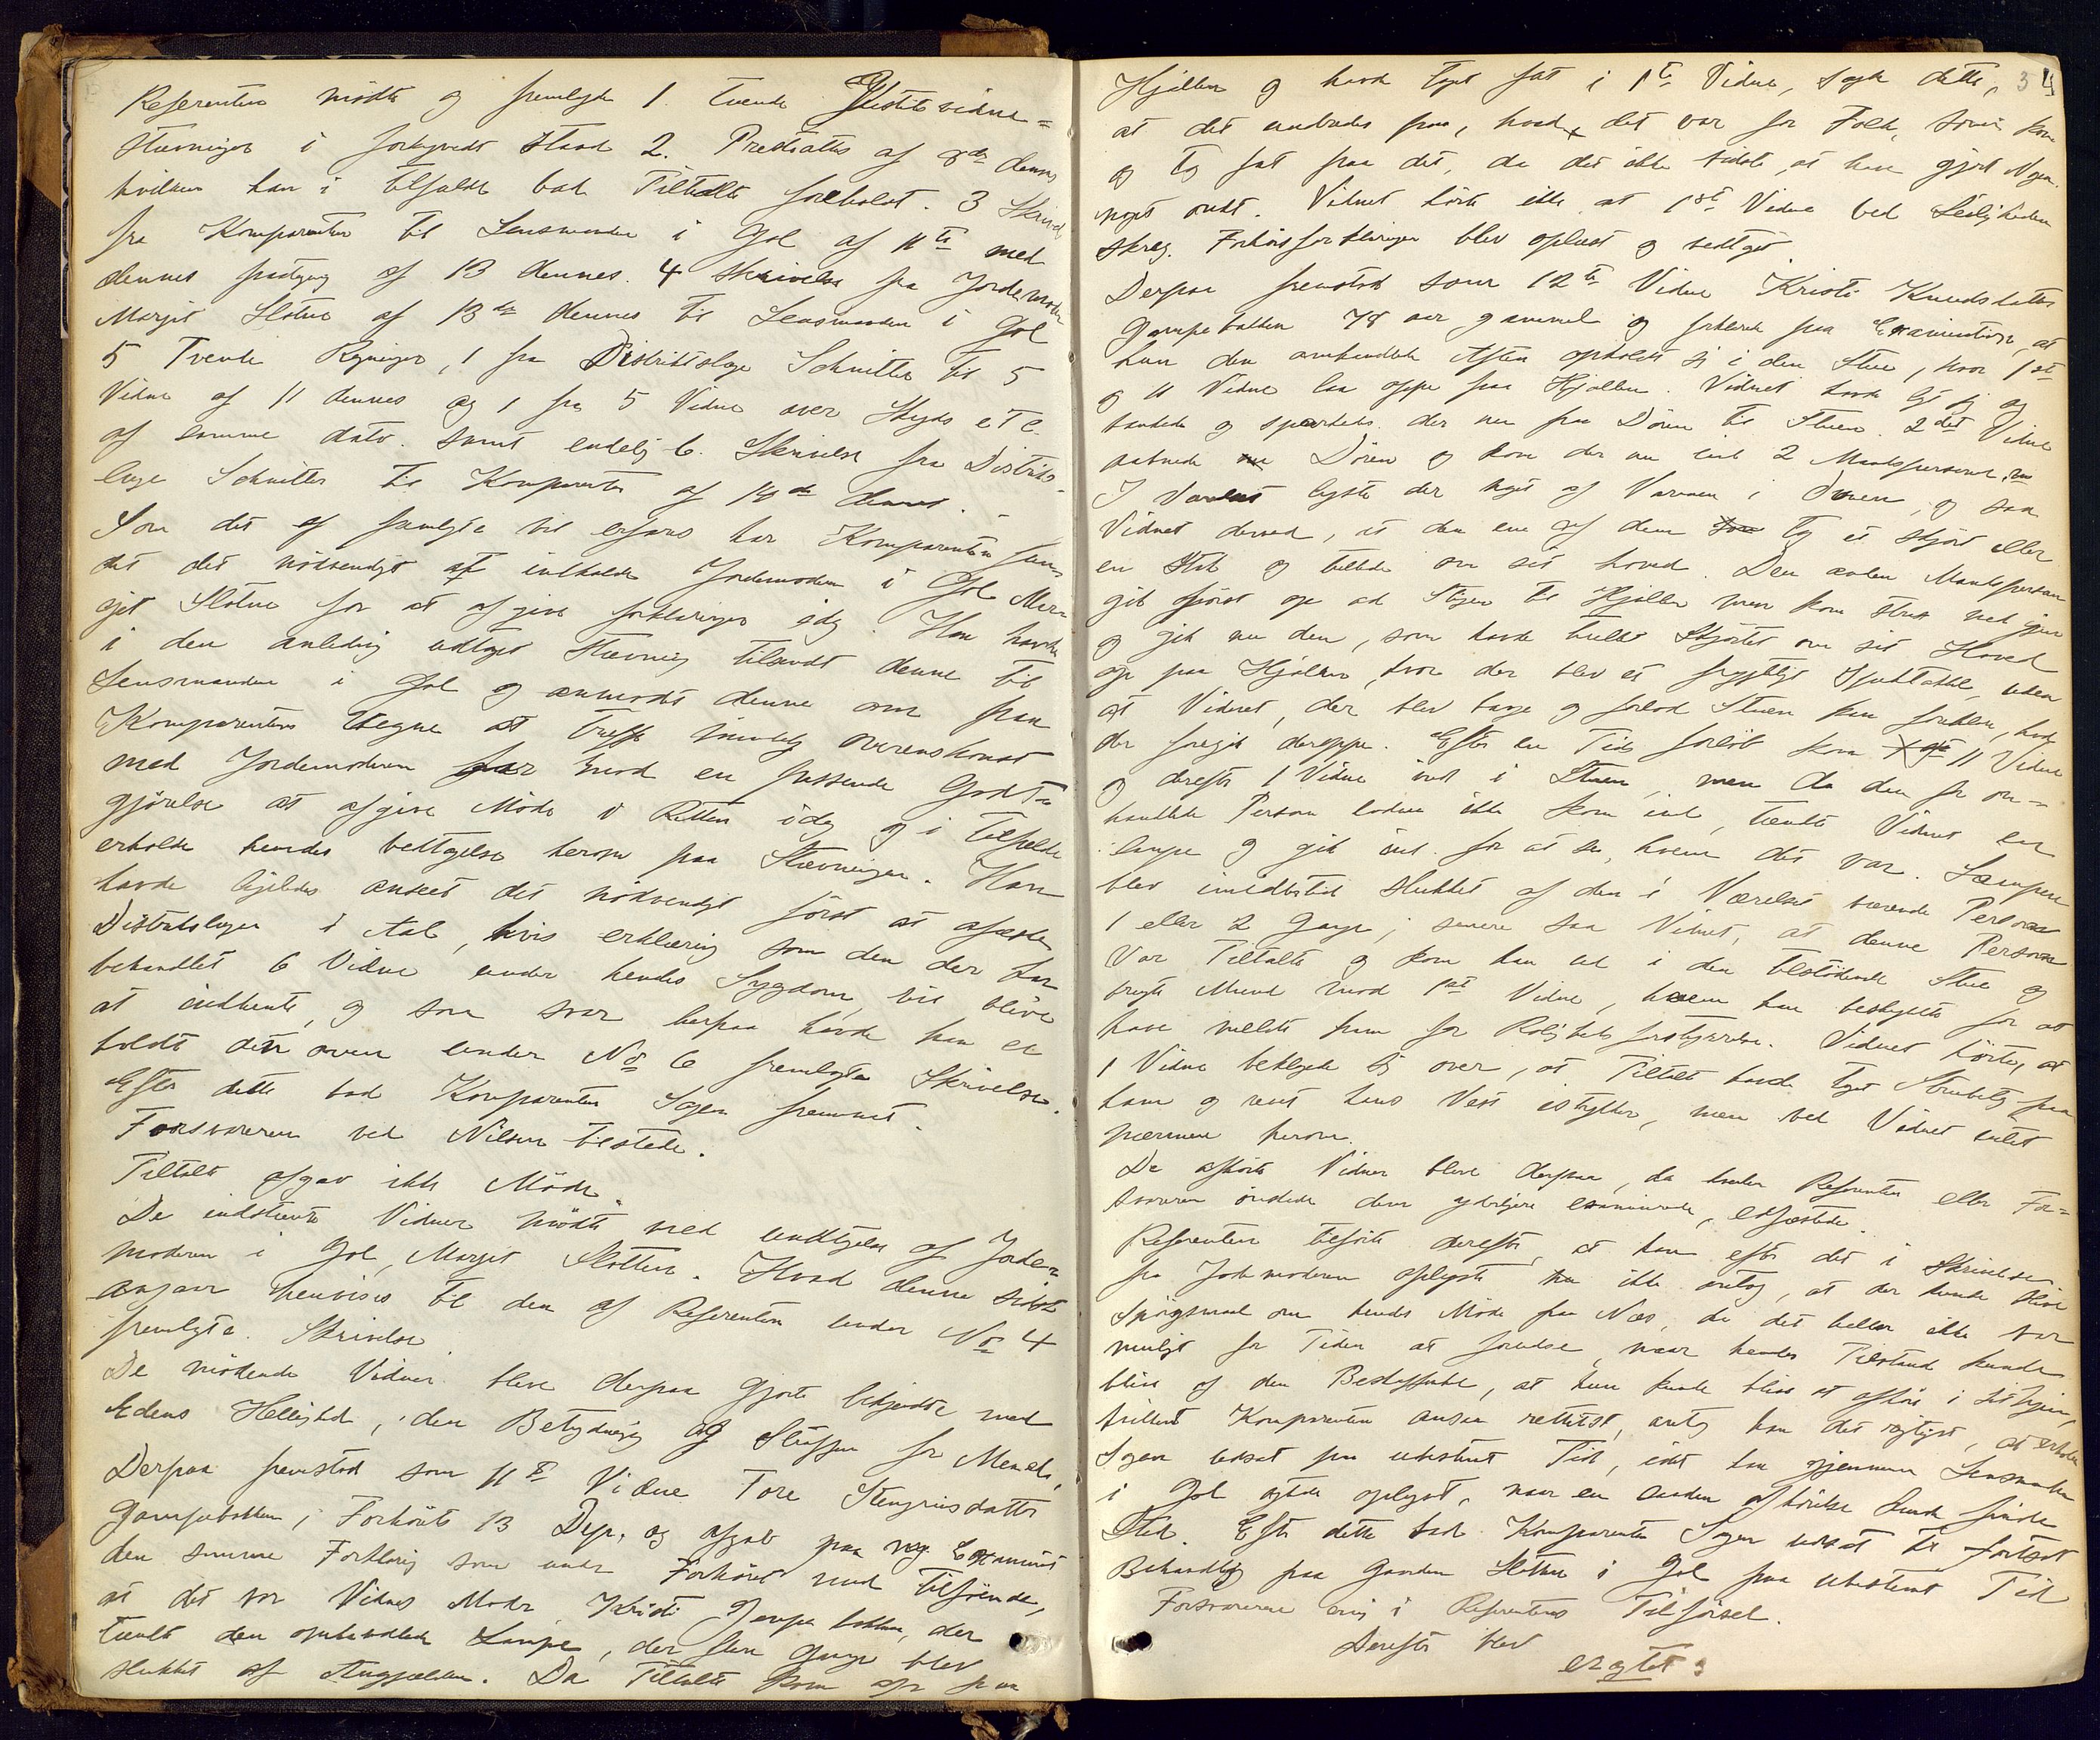 Referenten mødte og fremlagde 1. tvende Gjestevidne=
stævninger i forkyndt Stand 2. Prestattest af 8de dennes
hvilken han i tilfælde bad Tiltalte foreholdt. 3 Skrivelse
fra Komparenten til Lensmanden i Gol af 11te med
dennes paategning af 13 dennes. 4 Skrivelse fra Jordemoder
Margit Slotne af 13de dennes til Lensmanden i Gol
5 Tvende Regninger, 1 fra Distriktslæge Schnitler til 5
Vidne af 11 dennes og 1 fra 5 Vidne over Skyds etc.
af samme dato. samt endelig 6. Skrivelse fra Distrikts-
læge Schnitler til Komparenten af 14de dennes. -
Som det af fremlagte vil erfares har Komparenten fun-
det det nødvendigt at indkalde Jordemoderen i Gol Mar-
git Slotne for at afgive forklaringer idag. Han havde
i den anledning udtaget Stævning tilsendt denne til
Lensmanden i Gol og anmodet denne om paa
Komparentens Vegne at træffe mindelig overenskomst
med Jordemoderen mod en passende Godt-
gjørelse at afgive Møde i Retten idag og i Tilfælde
erholde hendes vedtagelse herom paa Stævningen. Han
havde ligeledes anseet det nødvendigt først at afæske
Distriktslægen i Aal, hvis erklæring som den der har
behandlet 6 Vidne under hendes Sygdom, vil blive
at indhente, og som svar herpaa havde han er
holdt den oven under No 6 fremlagte Skrivelse.
Efter dette bad Komparenten Sagen fremmet.
Forsvareren ved Nilsen tilstede.
Tiltalte afgav ikke Møde.
De indstevnte Vidner mødte med undtagelse af Jorde-
moderen i Gol, Margit Slotten. Hvad denne sidste
angaar henvises til den af Referenten under No 4
fremlagte Skrivelse
De mødende Vidner bleve derpaa gjorte bekjendte med
Edens Hellighed, den Betydning og Straffen for Mened.
Derpaa fremstod som 11te Vidne Tore Stengrimsdatter
Garnpebakken, i Forhørets 13 Dep. og afgav paa Examinat
den samme Forklaring som under Forhøret med Tilføiende,
at det var Vidnes Moder Kristi Garnpebakken, der
tændte den omhandlede Lampe, der flere Gange blev
slukket af Angjældende. Da Tiltalte kom op paa
Hjellen og havde taget fat i 1te Vidne, sagde dette, 34
at det undredes paa, hvad det var for Folk, som kom
og tog fat paa det, da det ikke vidste at have gjort Nogen
noget ondt. Vidnet hørte ikke at 1ste Vidne ved Leiligheden
skreg. Forhørsforklaringen blev oplæst og vedtaget.
Derpaa fremstod som 12te Vidne Kristi Knudsdatter
Garnpebakken 78 aar gammel og forklarede paa Examination, at
hun den omhandlede Aften opholdt sig i den Stue, hvor 1ste
og 11 Vidne laa oppe paa Hjellen. Vidnet havde lagt sig og
bankede og sparkedes der nu paa Døren til Stuen. 2det Vidne
aabnede Døren og kom der nu ind 2 Mandspersoner.
I Værelset lyste der noget af Varmen i Ovnen, og saa
Vidnet derved, at den ene af dem tog et Skjørt eller
en Stak og trak om sit hoved. Den anden Mandsperson
gik først op ad Stigen til Hjellen men kom strax ned igjen
og gik nu den, som havde trukket Skjørtet om sit Hoved
op paa Hjellen, hvor der blev et frygteligt Spektakkel, uden
at Vidnet, der blev bange og forlod Stuen kan forklare, hvad
der foregik deroppe. Efter en Tids forløb kom 11 Vidne
og derefter 1 Vidne ind i Stuen, men da den før om-
handlede Person endnu ikke kom ind, tændte Vidnet en
lampe og gik ind for at se, hvem det var. Lampen
blev imidlertid slukket af den i Værelset værende Person
1 eller 2 Gange; senere saa Vidnet, at denne Person
var Tiltalte og kom han ud i den tilstødende Stue og
brugte Mund mod 1ste Vidne, hvem han beskyldte for at
have meldt ham for Rolighedsforstyrrelse. Vidnet hørte, at
1 Vidne beklagede sig over, at Tiltalte havde taget Strubetag paa
ham og revet hans Vest istykker, men ved Vidnet intet
nærmere herom.
De afhørte Vidner bleve derpaa, da hverken Referenten eller For=
svareren ønskede dem yderligere examinerede, edfæstede.
Referenten tilførte derefter, at han efter det i Skrivelse
fra Jordemoderen oplyste ikke antog, at der kunde blive
Spørgsmaal om hendes Møde paa Næs, da det heller ikke var
muligt for Tiden at forudse, naar hendes Tilstand kunde
blive af den Beskaffenhed, at hun kunde blive at afhøre i sit hjem,
hvilket Komparenten anser rettest, antog han det rigtigst, at erholde
Sagen udsat paa ubestemt Tid, idet han gjennem Lensmanden
i Gol agtede oplyst, naar en saadan afhørelse kunde finde
Sted. Efter dette bad Komparenten Sagen udsat til fortsat
Behandling paa Gaarden Slotten i Gol paa ubestemt Tid
Forsvareren enig i Referentens Tilførsel.
Derefter blev
eragtet: